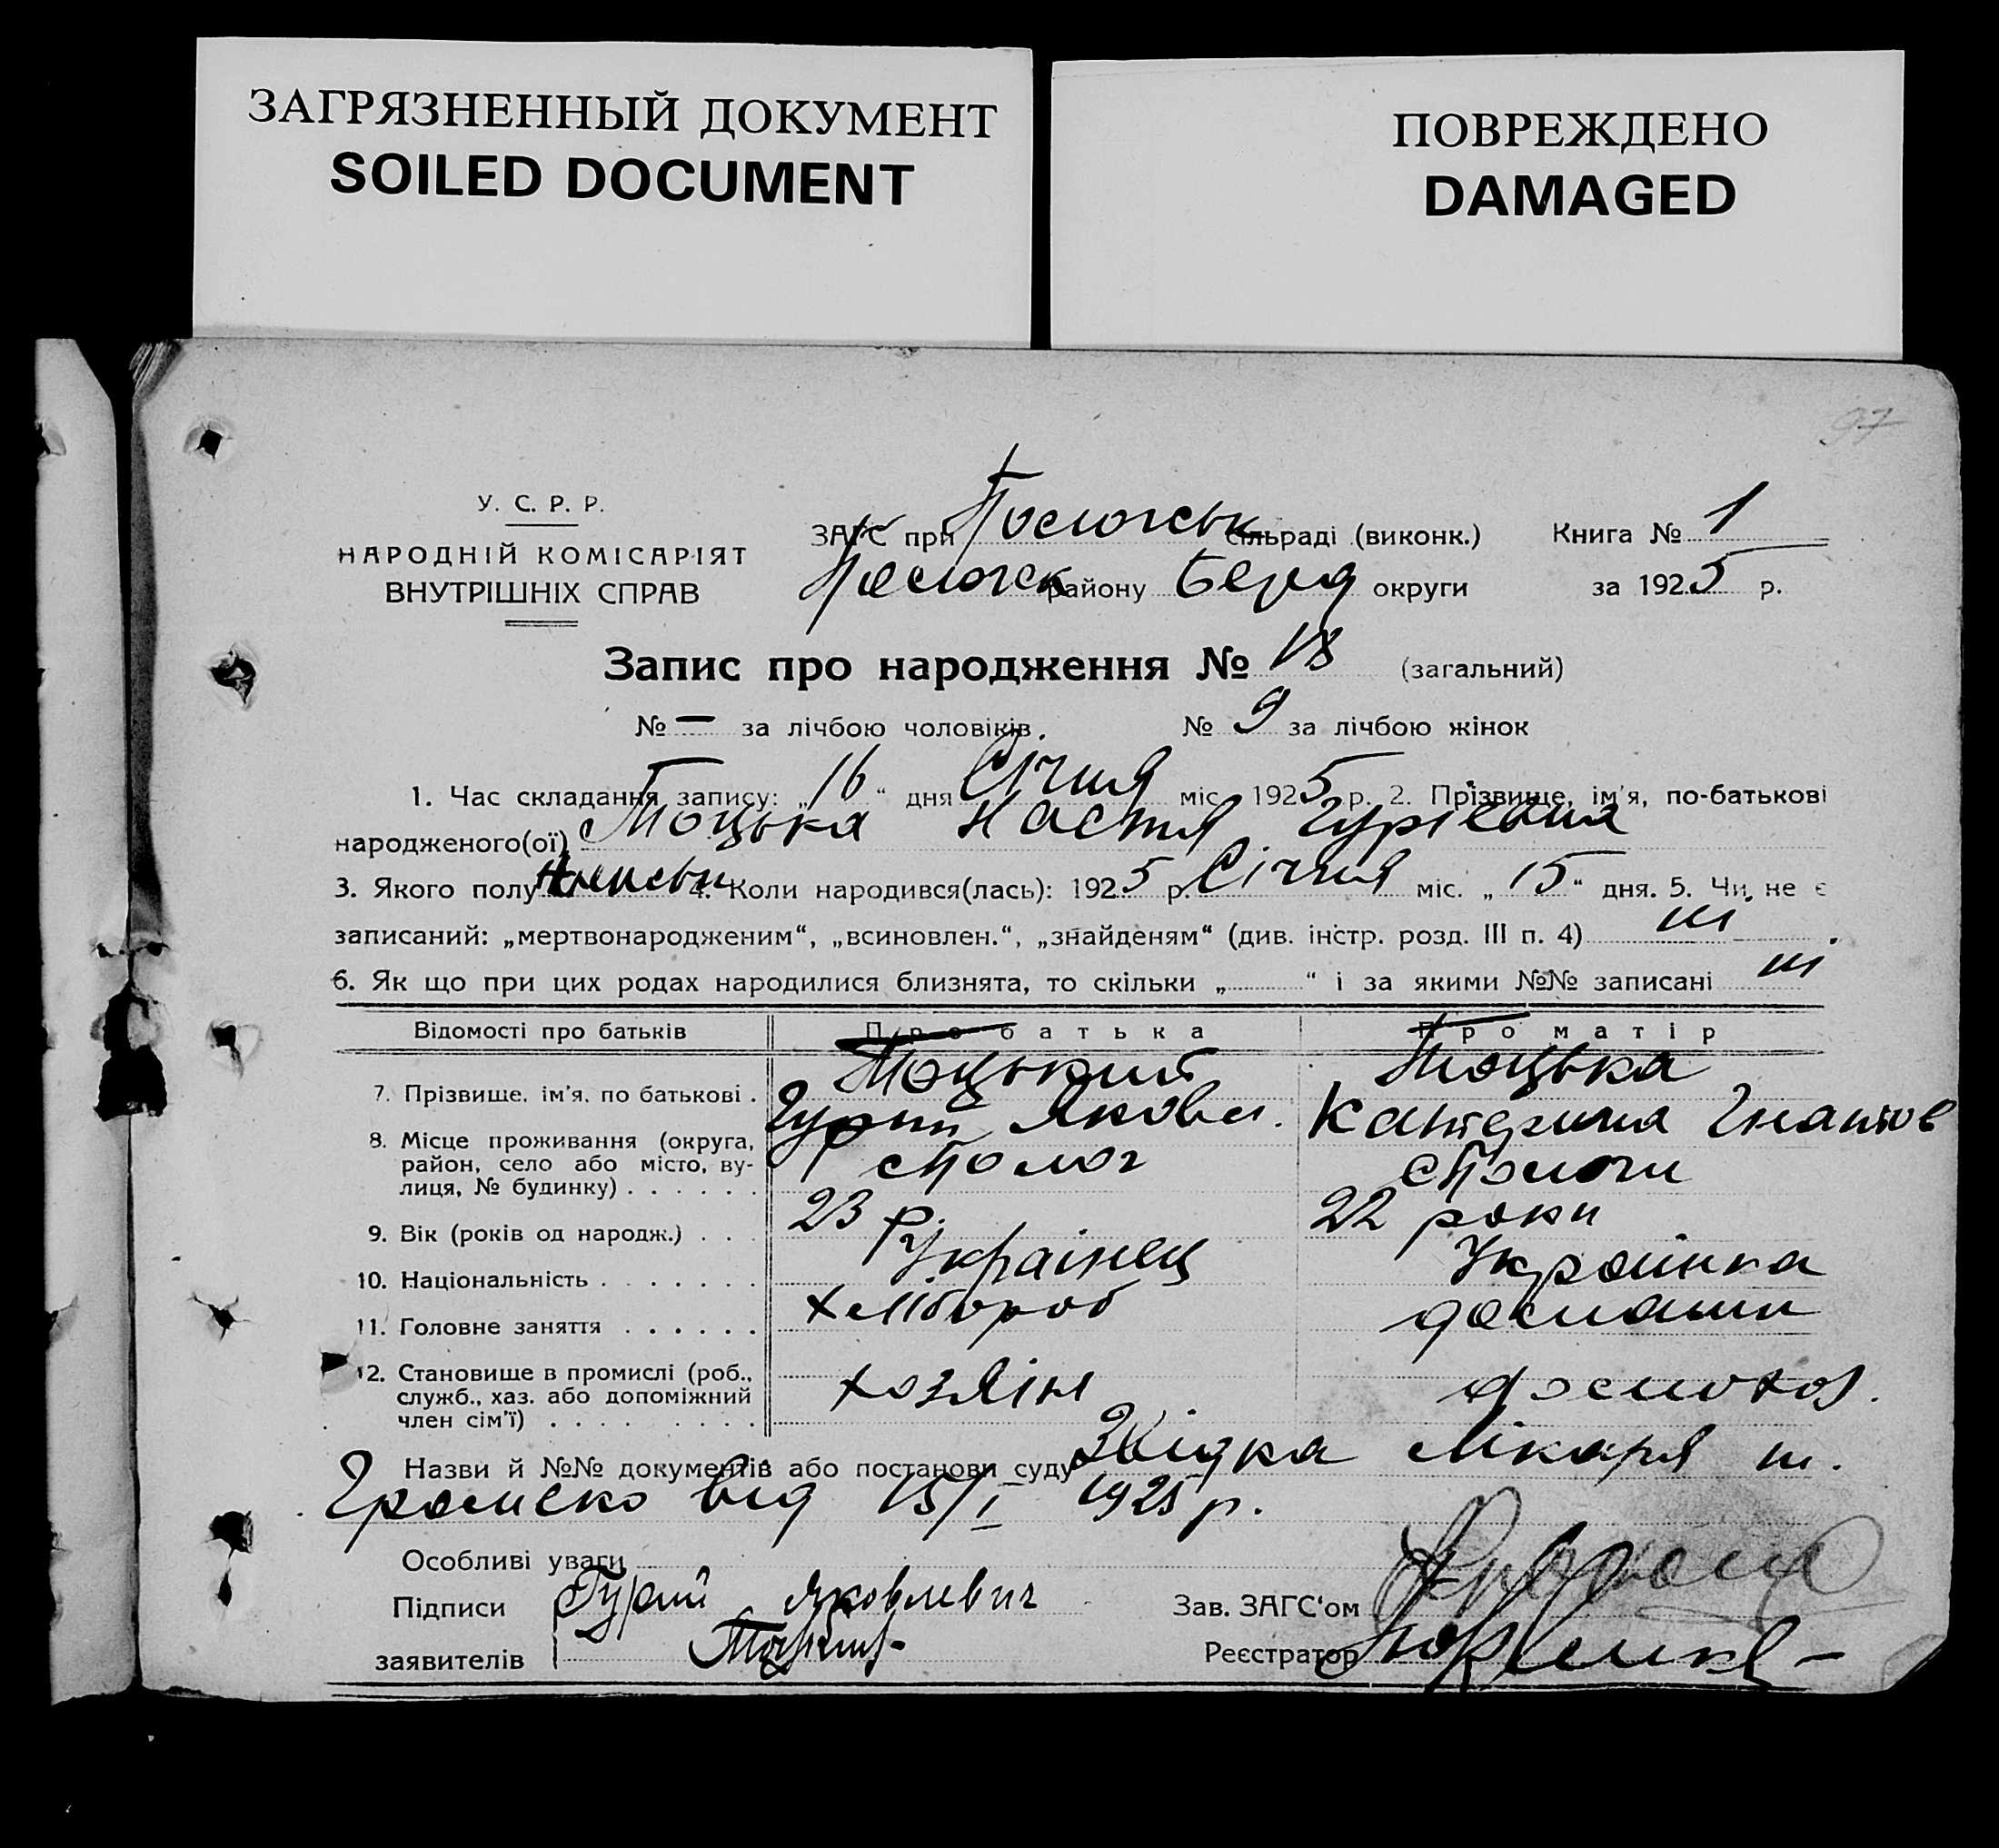 ЗАГРЯЗНЕННЫЙ ДОКУМЕНТ
SOILED DOCUMENT
ПОВРЕЖДЕНО
DAMAGED
97
У. С. Р. Р.
НАРОДНІЙ КОМІСАРІЯТ
ВНУТРІШНІХ СПРАВ
ЗАГС при Пологськ сільраді (виконк.) Книга № 1
Пологск району Берд округи за 1925 р.
Запис про народження № 18 (загальний)
№ — за лічбою чоловіків. № 9 за лічбою жінок
1. Час складання запису: „16“ дня Січня міс. 1925 р. 2. Прізвище, ім'я, по-батькові
народженого(ої) Тоцька Настя Гуріевна
3. Якого полу женськ 4. Коли народився(лась): 1925 р. Січня міс. „15“ дня. 5. Чи не є
записаний: „мертвонародженим“, „всиновлен.“, „знайденям“ (див. інстр. розд. III п. 4) ні
6. Як що при цих родах народилися близнята, то скільки „ “ і за якими №№ записані ні
Відомості про батьків Про батька Про матір
7. Прізвище, ім'я, по батькові . Тоцький Гурій Яковл. Тоцька Катерина Гнатов
8. Місце проживання (округа, район, село або місто, вулиця, № будинку) . . . . . . с Полог с Пологи
9. Вік (років од народж.) . . . 23 р. 22 роки
10. Національність . . . . . . . Украінец Украінка
11. Головне заняття . . . . . . хлібороб домашн
12. Становище в промислі (роб., служб., хаз. або допоміжний член сім'ї) . . . . . . . . . хозяін домохоз.
Назви й №№ документів або постанови суду Звідка лікаря
Громеко від 15/I 1925 р.
Особливі уваги
Підписи Гурий Яковлевич
Зав. ЗАГС'ом
заявителів Тоцкий
Реєстратор